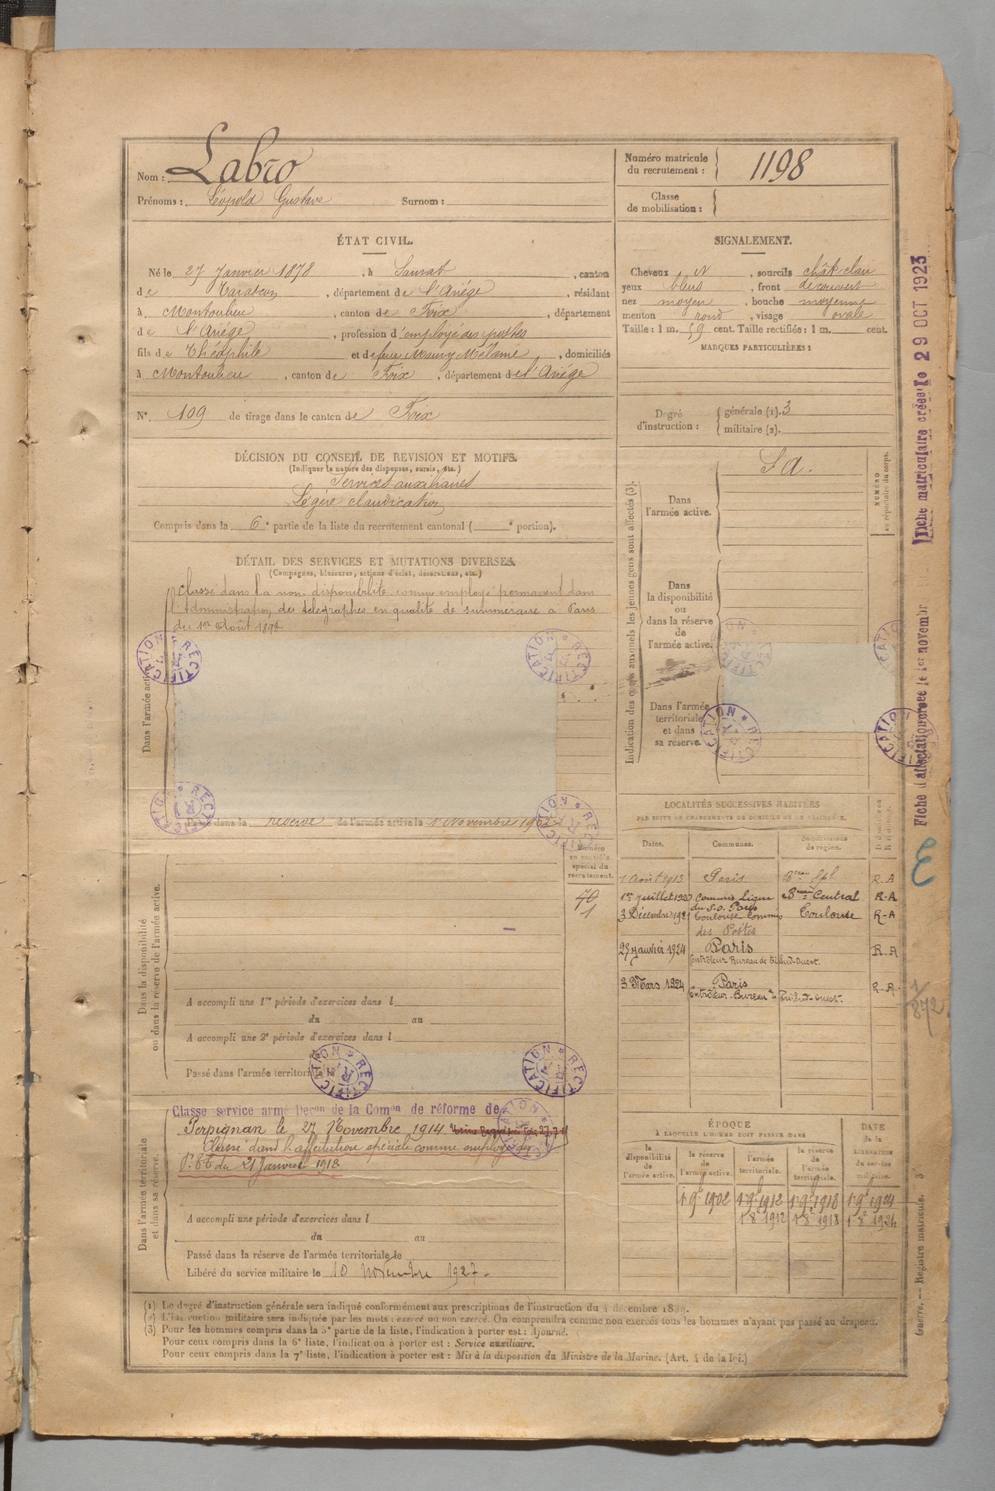 Nom : Labro
Prénoms : Léopold Gustave Surnom :
Numéro matricule du recrutement : 1198
Classe de mobilisation :
ÉTAT CIVIL.
Né le 27 Janvier 1878, à Saurat, canton
de Tarascon, département de l'Ariége, résidant
à Montoulieu, canton de Foix, département
de l'Ariége, profession d'employé des postes
fils de Théophile et de feue Maury Mélanie, domiciliés
à Montoulieu, canton de Foix, département de l'Ariége
N°. 109 de tirage dans le canton de Foix
SIGNALEMENT.
Cheveux N, sourcils chât-clair
yeux bleus, front découvert
nez moyen, bouche moyenne
menton rond, visage ovale
Taille : 1 m. 59 cent. Taille rectifiée : 1 m. cent.
MARQUES PARTICULIÈRES :
Degré d'instruction : générale (1). 3
militaire (2).
DÉCISION DU CONSEIL DE REVISION ET MOTIFS.
(Indiquer la nature des dispenses, sursis, etc.)
Services auxiliaires
Légère claudication
Compris dans la 6e partie de la liste du recrutement cantonal ( e portion).
DÉTAIL DES SERVICES ET MUTATIONS DIVERSES.
(Campagnes, blessures, actions d'éclat, décorations, etc.)
Classé dans la non disponibilité comme employé permanent dans
l'administration des télégraphes en qualité de surnuméraire à Paris
du 1er Août
Dans l'armée active
RECTIFICATION
Passé dans la réserve de l'armée active le 1er Novembre 1902
Indication des corps auxquels les jeunes gens sont affectés (3).
Dans l'armée active.
S A.
NUMÉRO au répertoire du corps.
Dans la disponibilité ou dans la réserve de l'armée active.
Dans l'armée territoriale et dans sa réserve.
Numéro au contrôle spécial du recrutement.
Dans la disponibilité ou dans la réserve de l'armée active.
A accompli une 1re période d'exercices dans l
du au
A accompli une 2e période d'exercices dans l
Passé dans l'armée territoriale
LOCALITÉS SUCCESSIVES HABITÉES
PAR SUITE DE CHANGEMENTS DE DOMICILE OU DE RÉSIDENCE.
Dates. Communes. Subdivisions de région.
1 Août 1913 Paris R-A
1er Juillet 1920 Commis Ligne du S.O. Paris Bau Central R-A
3 Décembre Toulouse Commis des Postes Toulouse R-A
25 janvier 1924 Paris R-A
3 Mars 1924 Paris R-A
1/872
Dans l'armée territoriale et dans sa réserve.
Classe service armé Decon de la Comon de réforme de
Perpignan le 27 Novembre 1914
Classé dans l'affectation spéciale comme employé des
P. et T. du 21 Janvier 1918
A accompli une période d'exercices dans l
du au
Passé dans la réserve de l'armée territoriale le
Libéré du service militaire le 10 novembre 1927.
ÉPOQUE
À LAQUELLE L'HOMME DOIT PASSER DANS
la disponibilité de l'armée active. la réserve de l'armée active. l'armée territoriale. la réserve de l'armée territoriale.
DATE de la LIBÉRATION du service militaire.
1er 9bre 1902 1er 9bre 1912 1er 9bre 1918 1er 9bre 1924
1er 8bre 1912 1er 8bre 1918 1er 8bre 1924
(1) Le degré d'instruction générale sera indiqué conformément aux prescriptions de l'instruction du 4 décembre 1889.
(2) L'instruction militaire sera indiquée par les mots : exercé ou non exercé. On comprendra comme non exercés tous les hommes n'ayant pas passé au drapeau.
(3) Pour les hommes compris dans la 5e partie de la liste, l'indication à porter est : Ajourné.
Pour ceux compris dans la 6e liste, l'indication à porter est : Service auxiliaire.
Pour ceux compris dans la 7e liste, l'indication à porter est : Mis à la disposition du Ministre de la Marine. (Art. 4 de la loi.)
Fiche matriculaire créée le 29 OCT 1923
Fiche d'affectation créée le 1er novembr
Guerre. — Registre matricule. 3